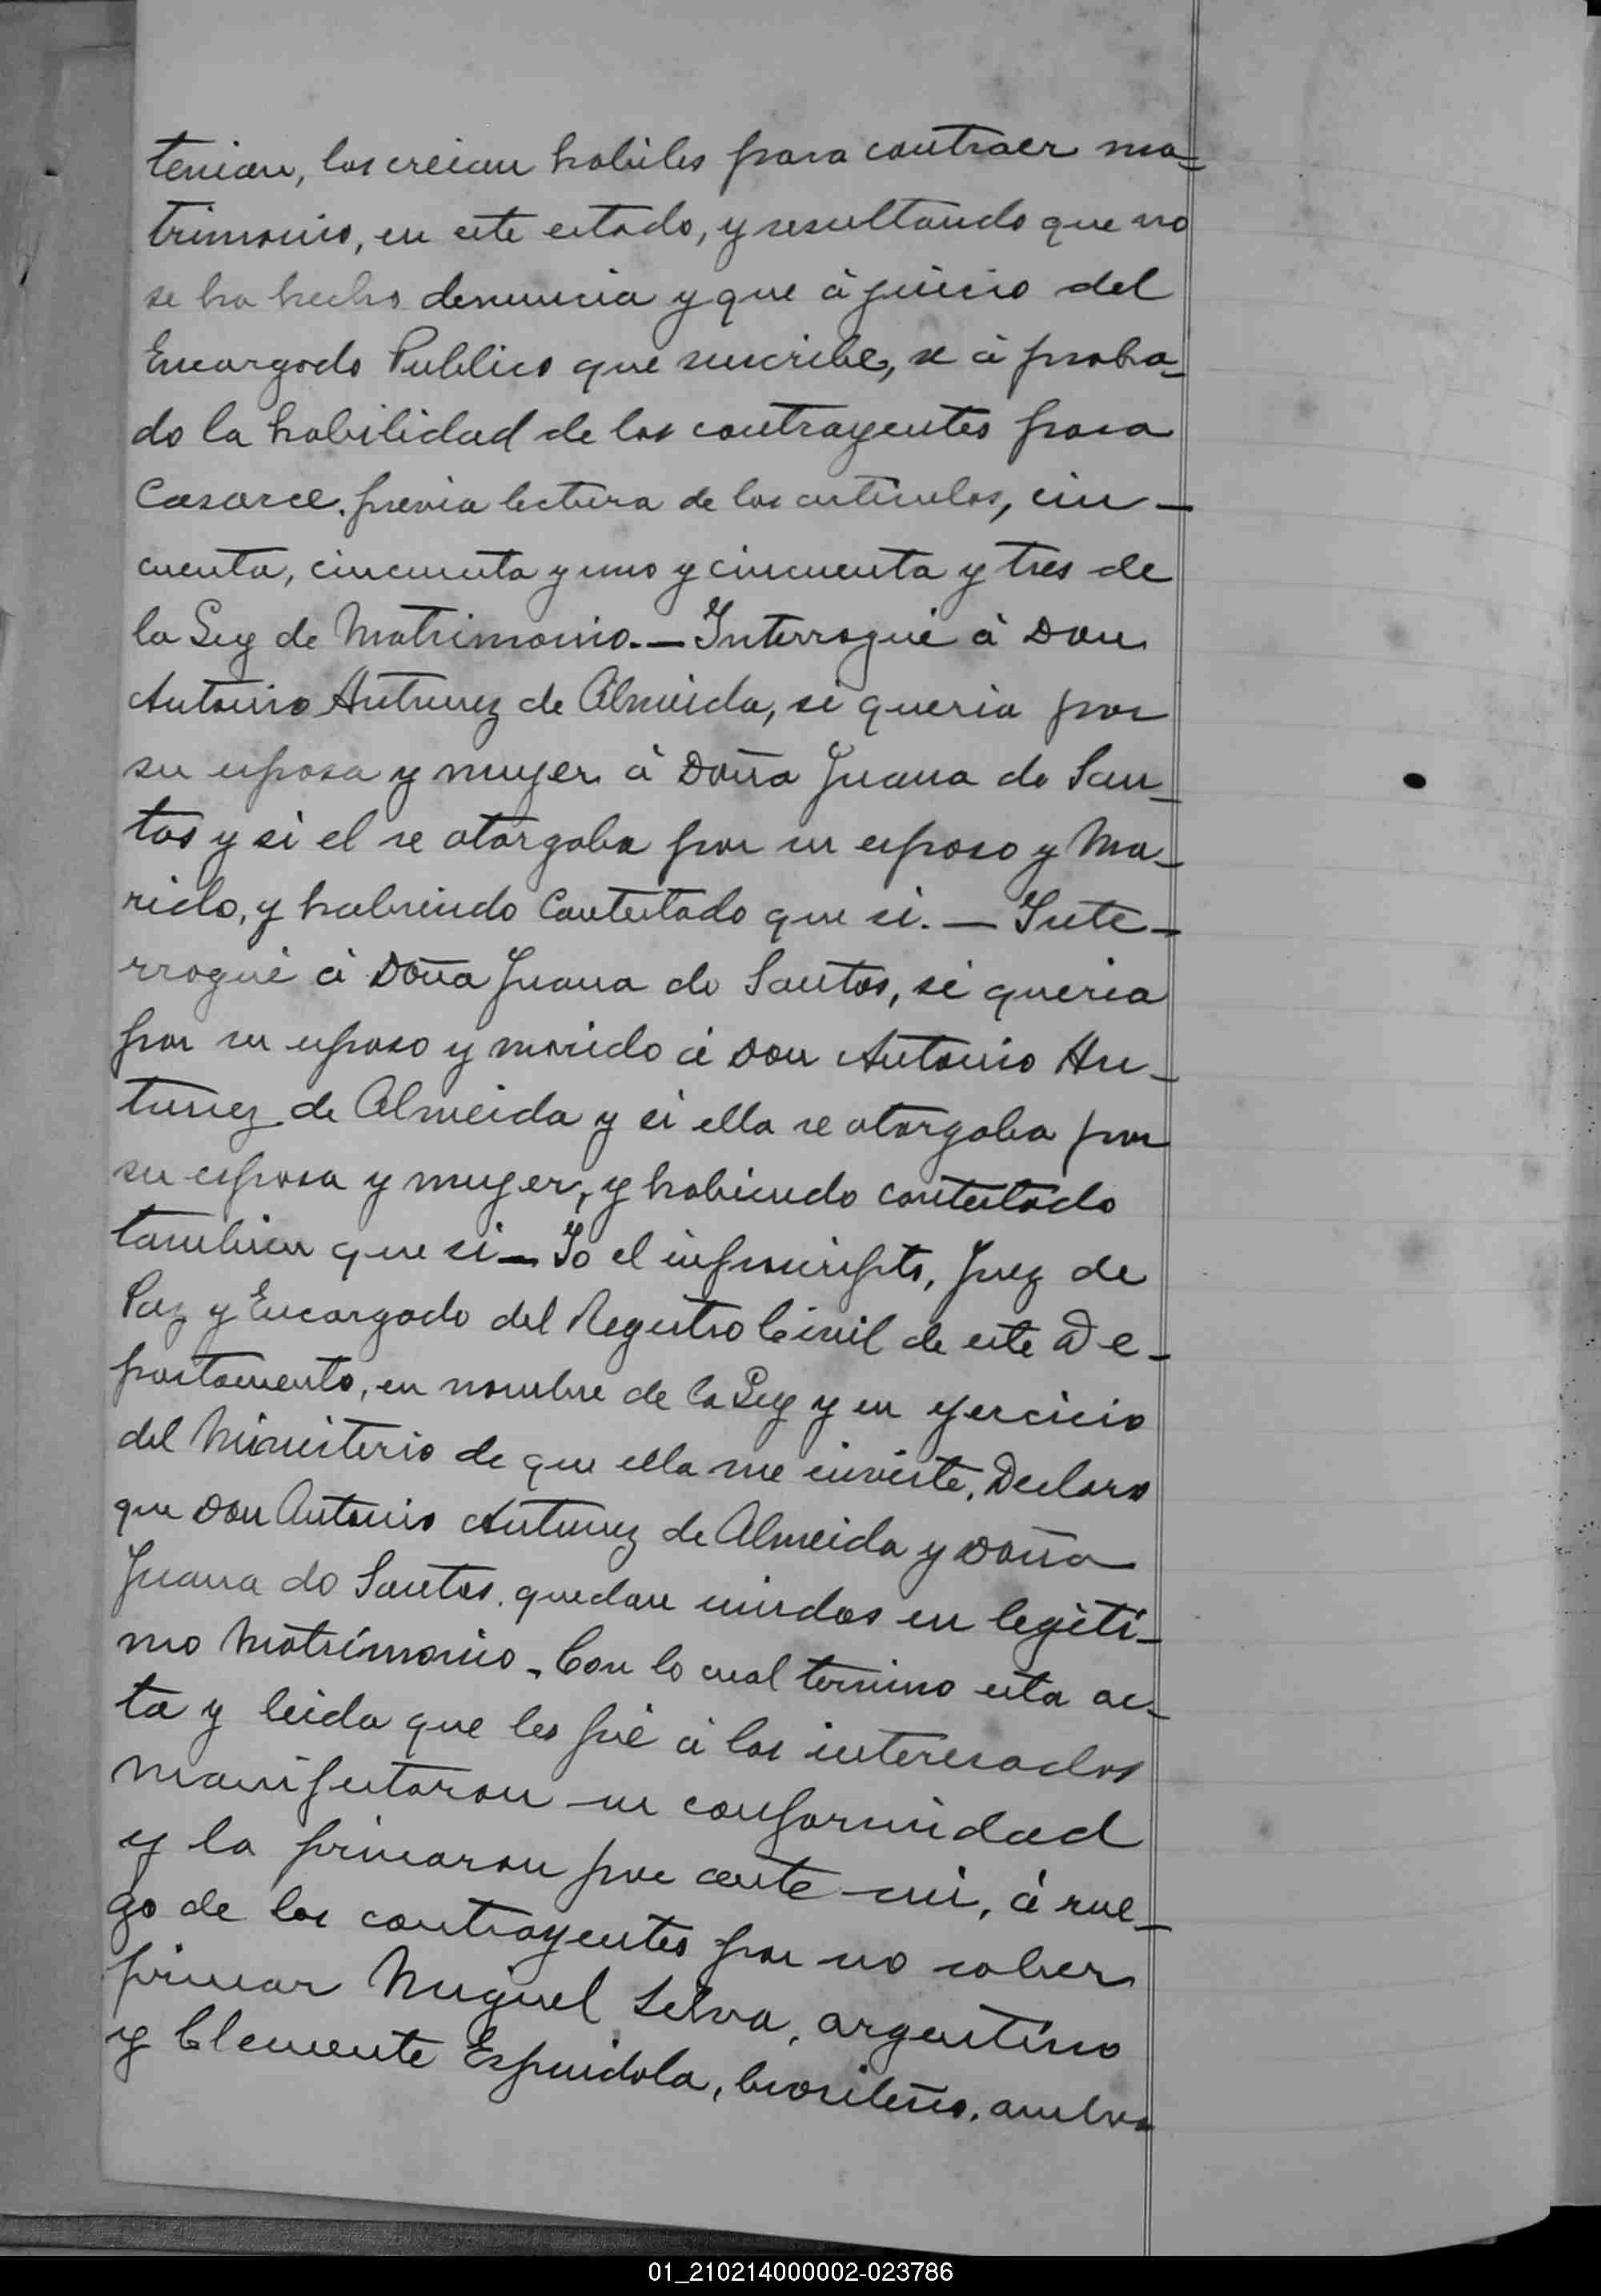 tenian, los creian habiles para contraer ma-
trimonio, en este estado, y resultando que no
se ha hecho denuncia y que à juicio del
Encargado Publico que suscribe, se à proba-
do la habilidad de los contrayentes para
Casarce. previa lectura de los articulos, cin-
cuenta, cincuenta y uno y cincuenta y tres de
la Ley de Matrimonio.- Interrogué à Don
Antonio Antunez de Almeida, si queria por
su esposa y muger à Doña Juana do San-
tos y si el se otorgaba por su esposo y Ma-
rido, y habiendo Contestado que si. - Inte-
rrogué à Doña Juana do Santos, si queria
por su esposo y marido à Don Antonio An-
tunez de Almeida y si ella se otorgaba por
su esposa y muger, y habiendo contestado
tambien que si - Yo el infrascripto, Juez de
Paz y Encargado del Registro Civil de este De-
partamento, en nombre de la Ley y en ejercicio
del Ministerio de que ella me inviste, Declaro
que Don Antonio Antunez de Almeida y Doña
Juana do Santos. quedan unidos en legiti-
mo Matrimonio. Con lo cual termino esta ac-
ta y leida que les fué à los interesados
manifestaron su conformidad
y la firmaron por ante mi, à rue-
go de los contrayentes por no saber
firmar Miguel Selva, argentino
y Clemente Espindola, brasileño, ambos
01_210214000002-023786